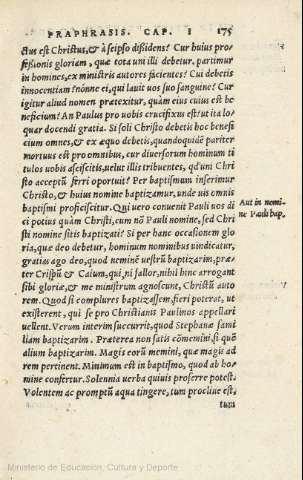 PARAPHRASIS. CAP. I 175
ctus est Christus, & à seipso dissidens? Cur huius pro
fessionis gloriam, quæ tota uni illi debetur, partimur
in homines, ex ministris autores facientes? Cui debetis
innocentiam? nónne ei, qui lauit uos suo sanguine? Cur
igitur aliud nomen prætexitur, quàm eius cuius est be
neficium? An Paulus pro uobis crucifixus est? ut ita lo
quar docendi gratia. Si soli Christo debetis hoc benefi
cium omnes, & ex æquo debetis, quandoquidē pariter
mortuus est pro omnibus, cur diuersorum hominum ti
tulos uobis asciscitis, uelut illis tribuentes, q'd uni Chri
sto acceptū ferri oportuit? Per baptismum inserimur
Christo, & huius nomine baptizamur, unde uis omnis
baptismi proficiscitur. Qui uero conuenit Pauli uos di
ci potius quàm Christi, cum nō Pauli nomine, sed Chri
sti nomine sitis baptizati? Si per hanc occasionem glo
ria, quæ deo debetur, hominum nominibus uindicatur,
gratias ago deo, quod neminē uestrū baptizarim, præ-
ter Crispū & Caium, qui, ni fallor, nihil hinc arrogant
sibi gloriæ, & me ministrum agnoscunt, Christū auto
rem. Quòd si complures baptizassem, fieri poterat, ut
existerent, qui se pro Christianis Paulinos appellari
uellent. Verum interim succurrit, quod Stephanæ fami
liam baptizarim. Præterea non satis cōmemini, si quē
alium baptizarim. Magis eorū memini, quæ magis ad
rem pertinent. Minimum est in baptismo, quod ab ho-
mine confertur. Solennia uerba quiuis proferre potest.
Volentem ac promptū aqua tingere, tum procliue est,
tum
Aut in nomi-
ne Pauli bap.
Ministerio de Educación, Cultura y Deporte